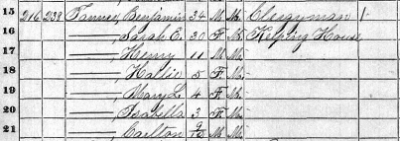 15 216 238 Tanner, Benjamin 34 M. M. Clergyman 1
16 ——, Sarah E. 30 F. M. Keeping House
17 ——, Henry 11 M. M.
18 ——, Hallie 5 F. M.
19 ——, Mary L. 4 F. M.
20 ——, Isabella 3 F. M.
21 ——, Carlton 9/12 M. M.